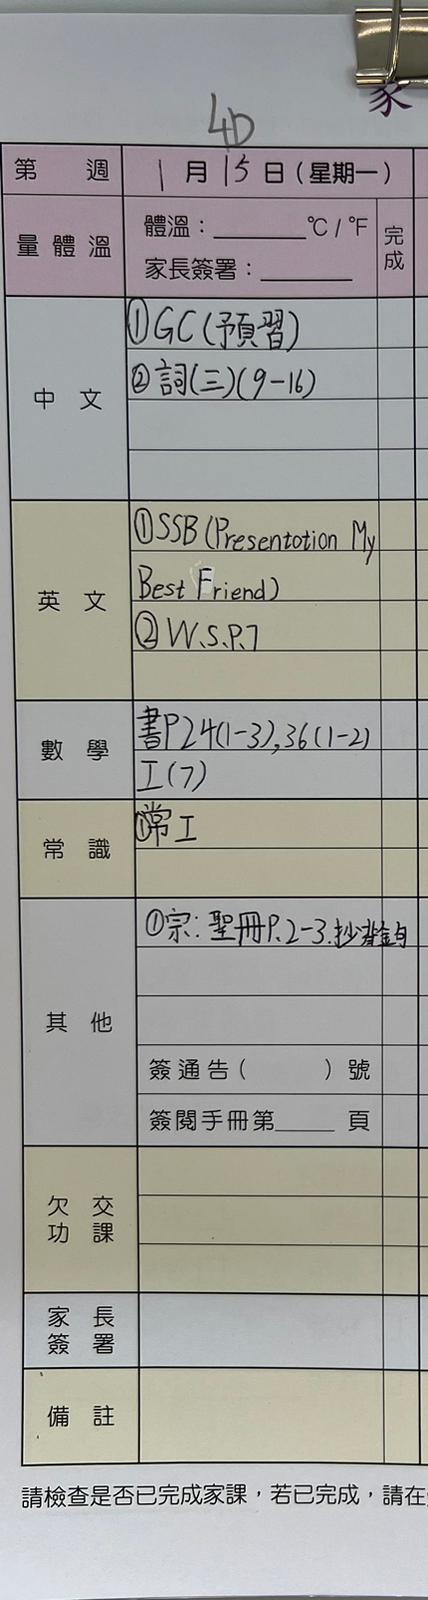 家
4D
第 週 1月15日(星期一)
量體溫 體溫：______°C/°F 完成
家長簽署：______
中文 ①GC(預習)
②詞(三)(9-16)
英文 ①SSB(Presentotion My
Best Friend)
②W.S.P.7
數學 書P24(1-3),36(1-2)
工(7)
常識 ①常工
其他 ①宗:聖冊P.2-3.抄背金句
簽通告( )號
簽閱手冊第_____頁
欠交
功課
家長
簽署
備註
請檢查是否已完成家課，若已完成，請在